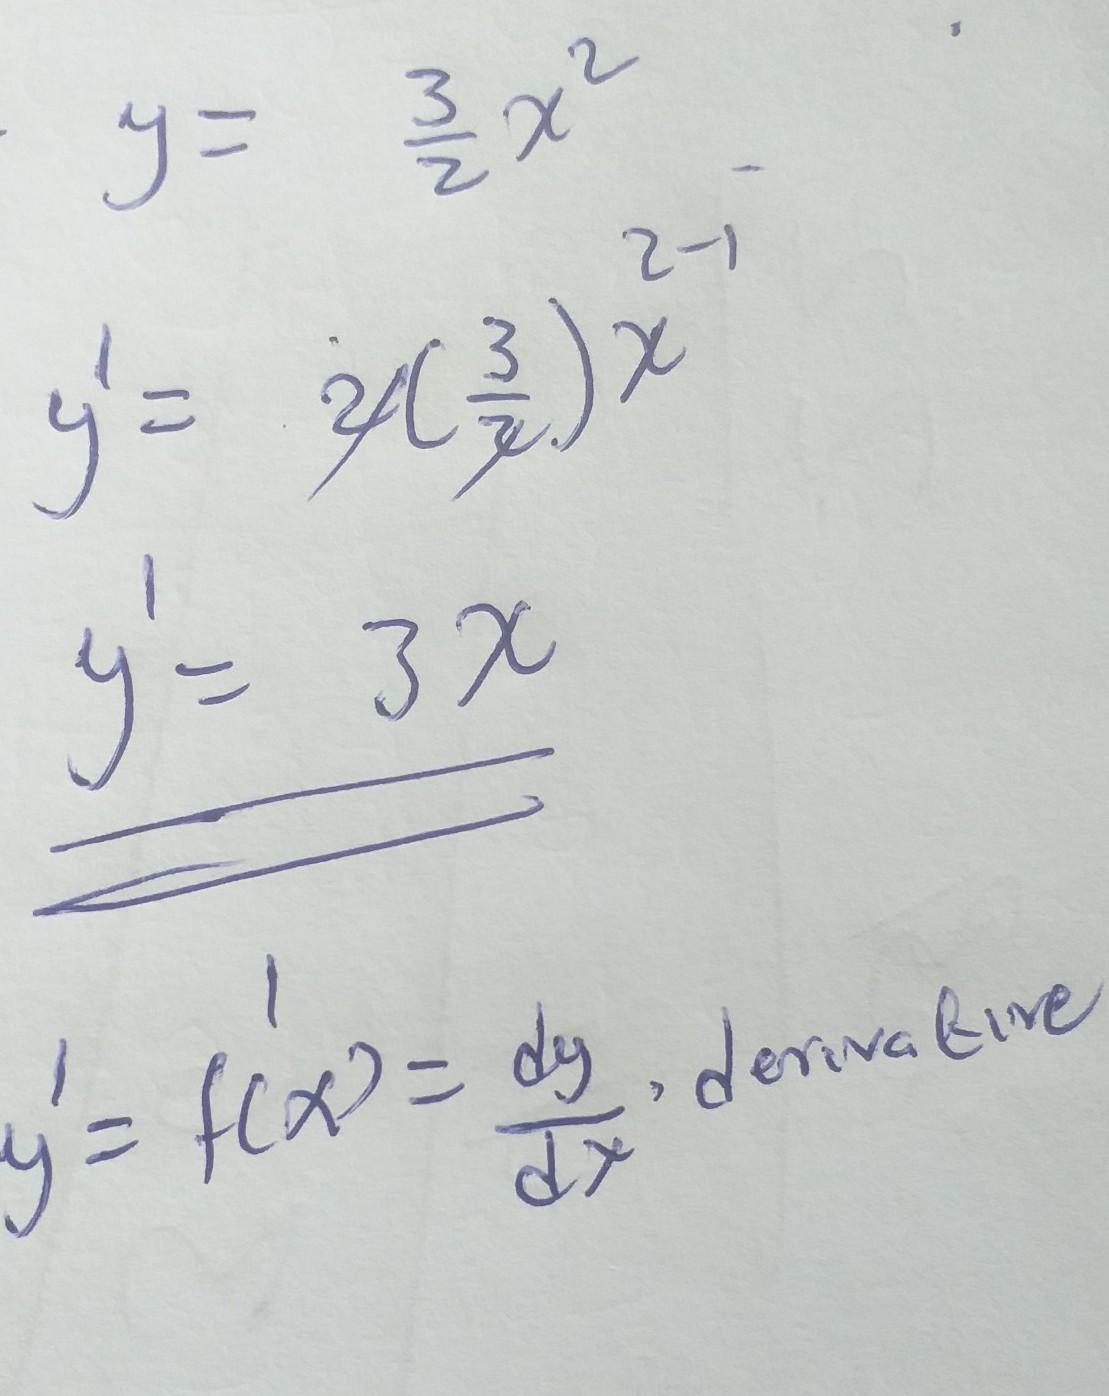 y = 3/2 x²
y' = 2(3/2)x²⁻¹
y' = 3x
y' = f'(x) = dy/dx, derivative